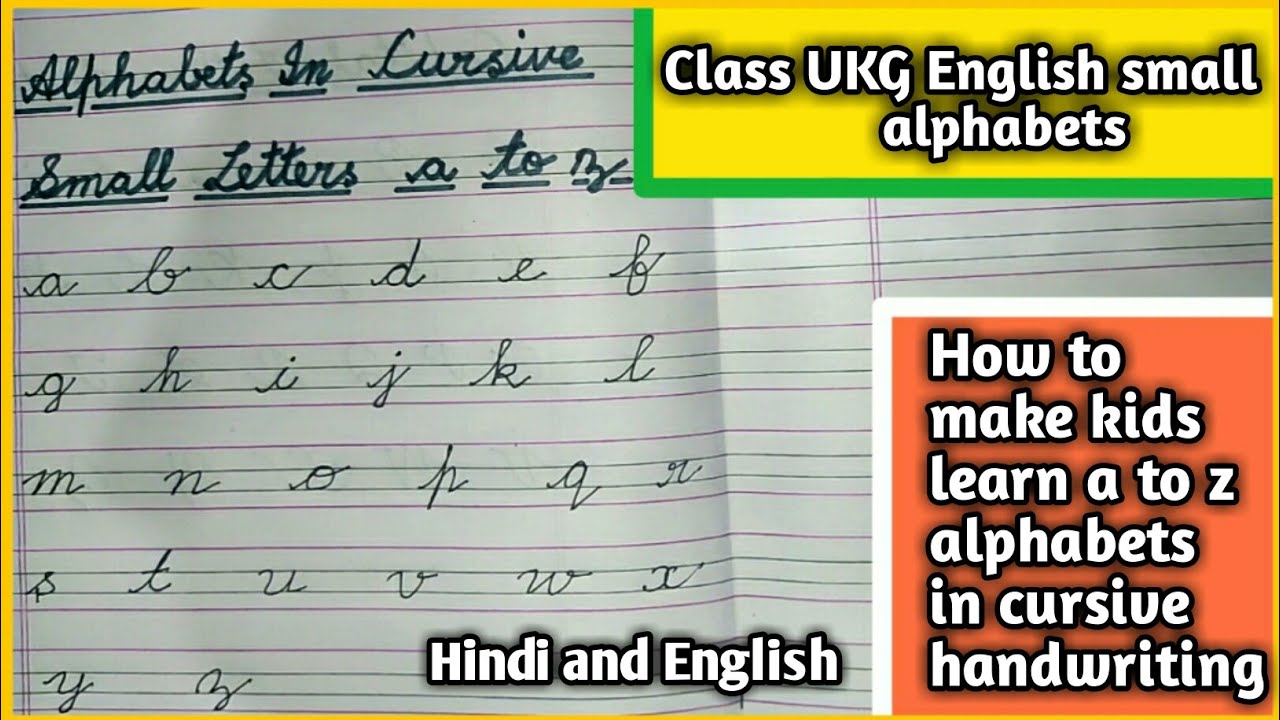 Alphabets In Cursive
Small Letters a to z
a b c d e f
g h i j k l
m n o p q r
s t u v w x
y z
Class UKG English small
alphabets
How to
make kids
learn a to z
alphabets
in cursive
handwriting
Hindi and English